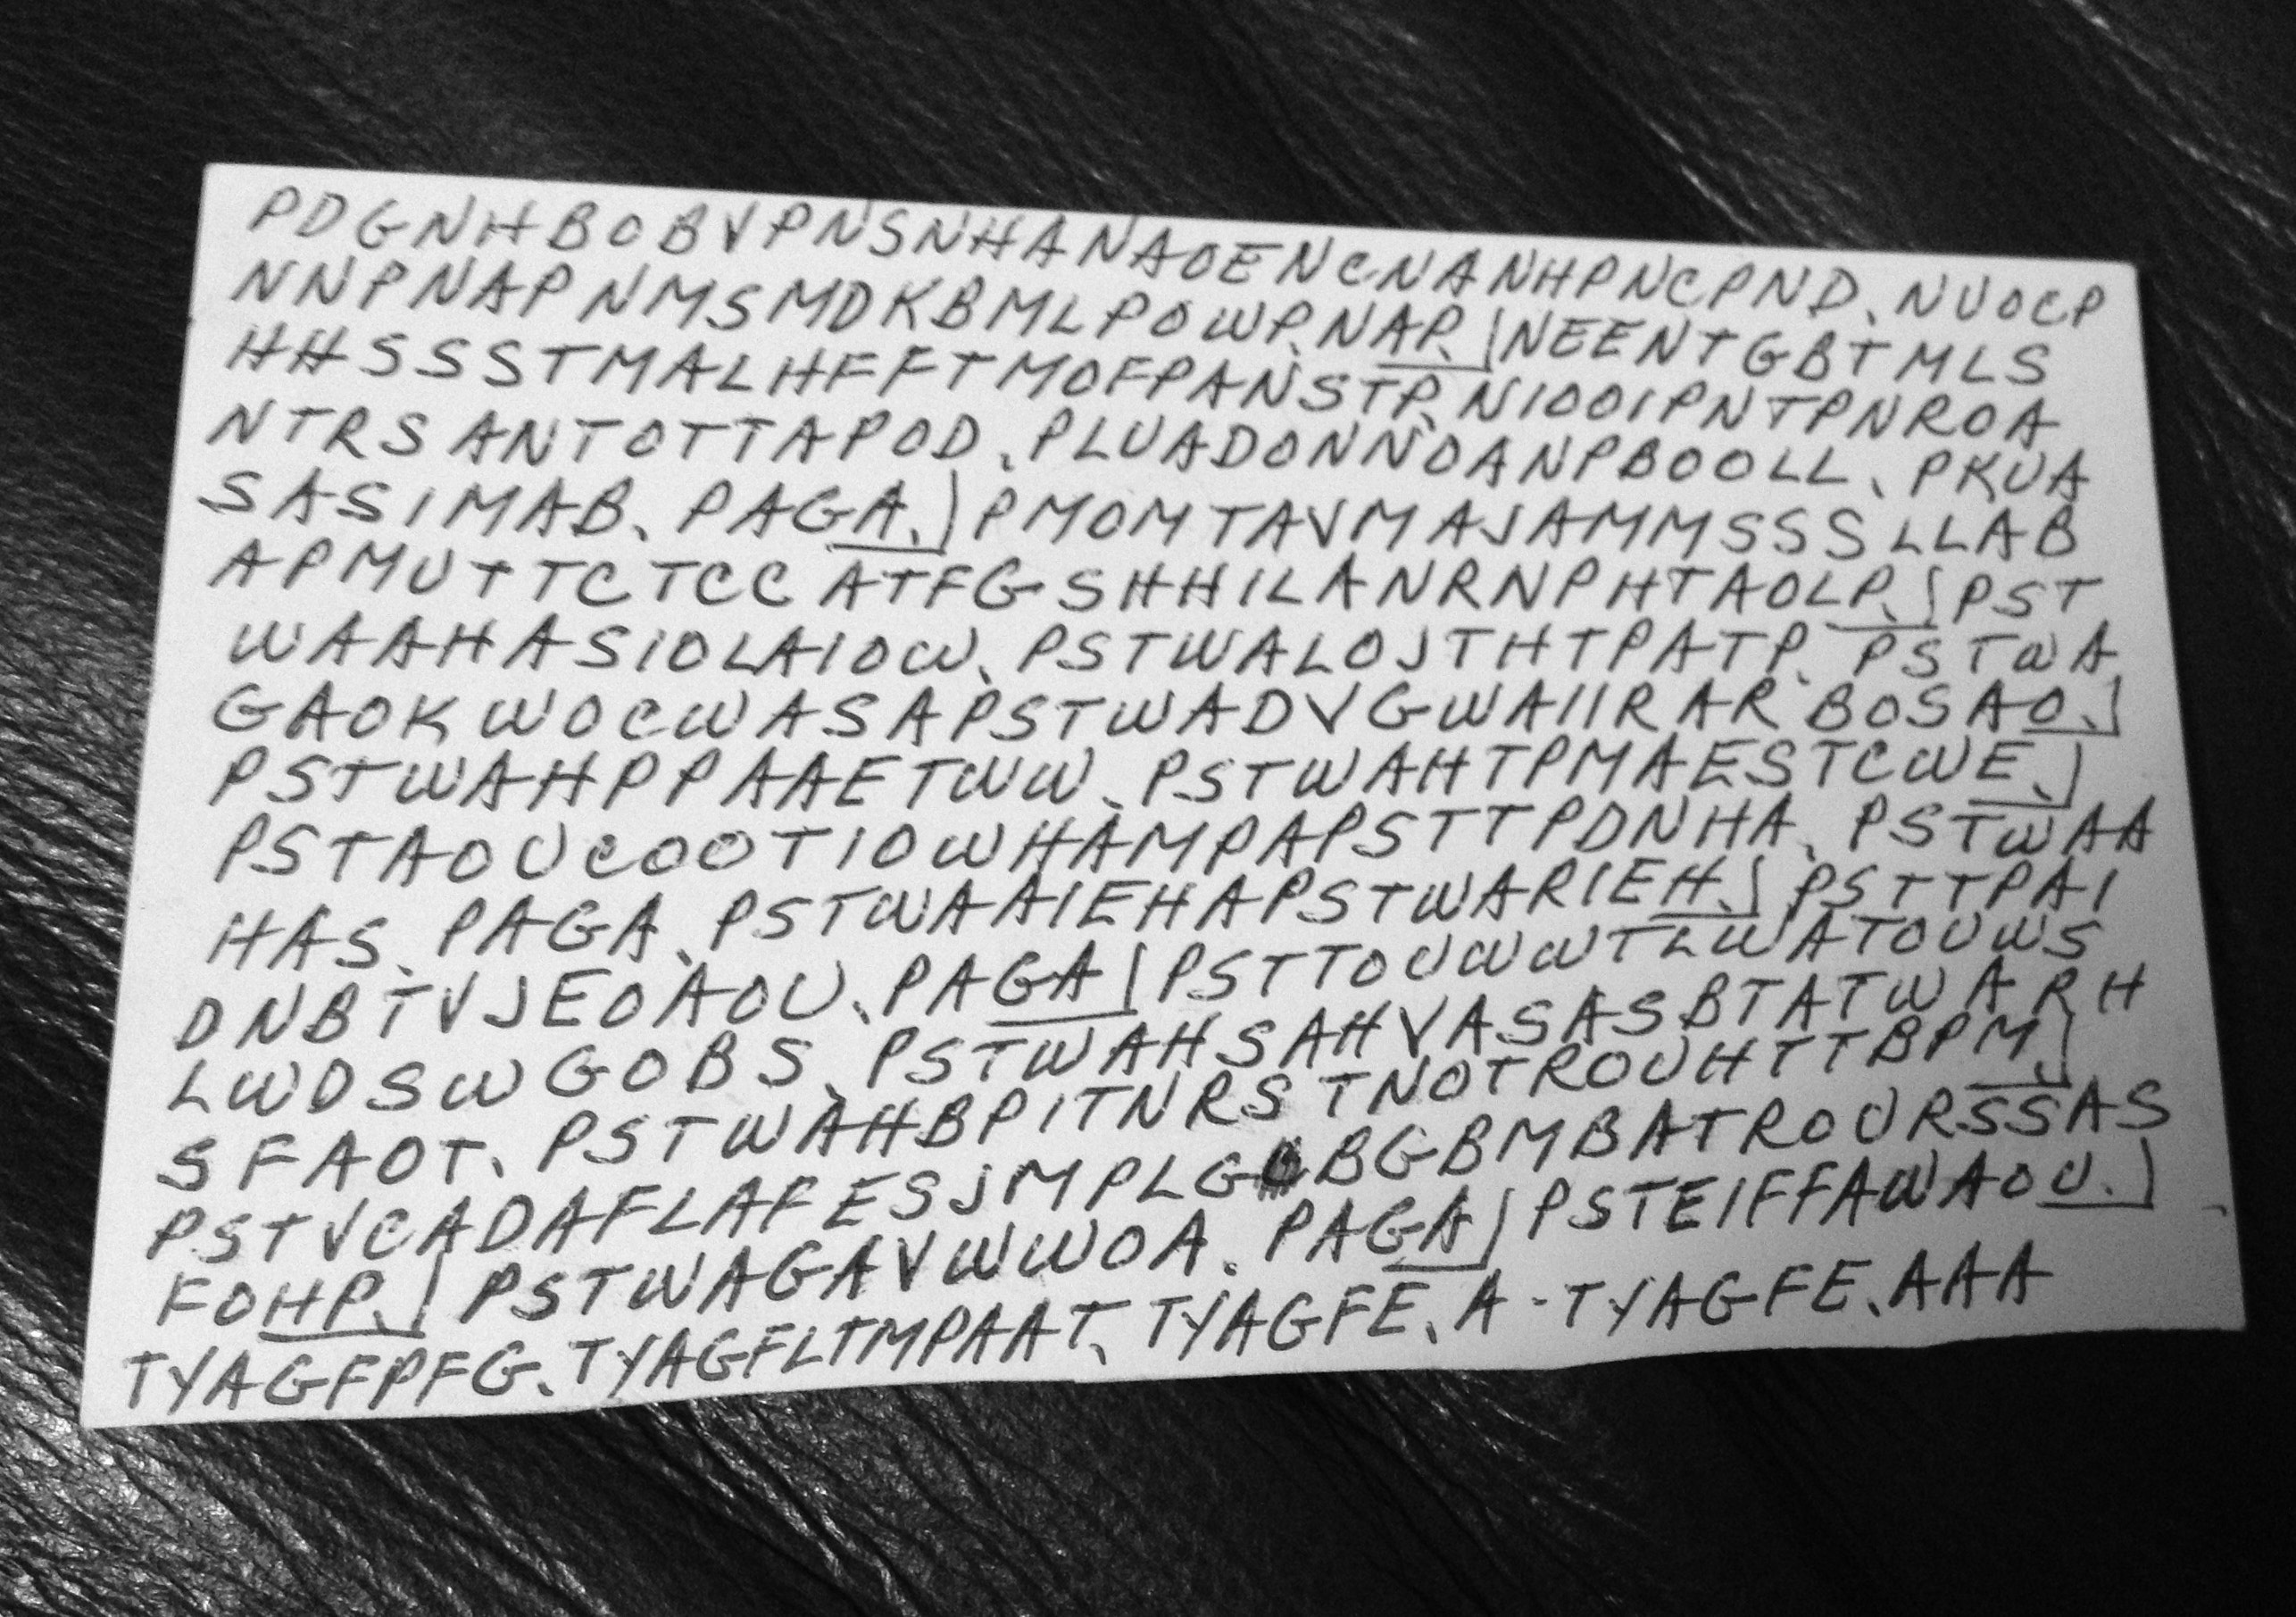 PDGNHBOBVPNSNHANAOENCNANHPNCPND. NUOCP
NNPNAPNMSMDKBMLPOWP. NAP. NEENTGBTMLS
HHSSSTMALHFFTMOFPANSTP. N1001PNTPNROA
NTRSANTOTTAPOD. PLUADONNOANPBOOLL. PKUA
SASIMAB. PAGA. PMOMTAVMAJAMMSSSLLAB
APMUTTCTCCATFGSHHILANRNPHTAOLP. PST
WAAHASIOLAIOW. PSTWALOJTHTPATP. PSTWA
GAOKWOCWASAPSTWADVGWAIIRARBOSAO.
PSTWAHPPAAETWW. PSTWAHTPMAESTCWE.
PSTAOUCOOTIOWHAMPAPSTTPDNHA. PSTWAA
HAS. PAGA. PSTWAAIEHAPSTWARIEH. PSTTPAI
DNBTVJEOAOU. PAGA PSTTOUWWTLWATOUWS
LWDSWGOBS. PSTWAHSAHVASASBTATWARH
SFAOT. PSTWAHBPITNRSTNOTROUHTTBPM.
PSTVCADAFLAFESJMPLG BGBMBATROURSSAS
FOHP. PSTWAGAVWWOA. PAGA PSTEIFFAWAOU.
TYAGFPFG. TYAGFLTMPAAT. TYAGFE. A-TYAGFE. AAA